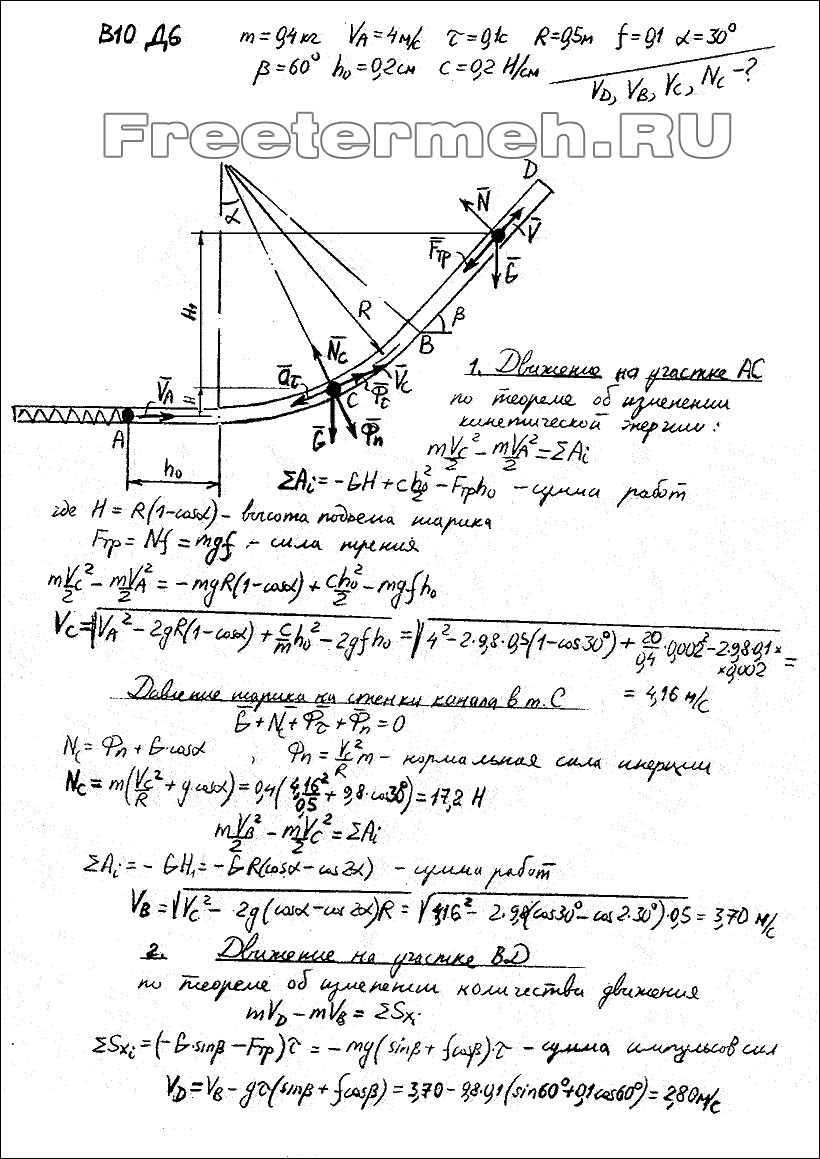 В10 Д6 m=0,4кг V_A=4м/с τ=0,1с R=0,5м f=0,1 α=30°
β=60° h₀=0,2см c=0,2 Н/см V_D, V_B, V_C, N_C-?
Freetermeh.RU
D
N̄
α
V̄
F̄тр
Ḡ
H₁
R
β
B
N̄_C
ā_τ
V̄_C
Φ̄_τ
C
V̄_A
H
A
Ḡ
Φ̄n
h₀
1. Движение на участке АС
по теореме об изменении
кинетической энергии:
mV_C²/2 - mV_A²/2 = ΣAi
ΣAi = -GH + ch₀²/2 - Fтр h₀ - сумма работ
где H = R(1-cosα) - высота подъема шарика
Fтр = Nf = mgf - сила трения
mV_C²/2 - mV_A²/2 = -mgR(1-cosα) + ch₀²/2 - mgfh₀
V_C = √(V_A² - 2gR(1-cosα) + c/m h₀² - 2gfh₀) = √(4² - 2·9,8·0,5(1-cos30°) + 20/0,4·0,002² - 2·9,8·0,1×
×0,002) =
= 4,16 м/с
Давление шарика на стенки канала в т. С
Ḡ + N̄_C + Φ̄_τ + Φ̄n = 0
N_C = Φn + G·cosα , Φn = V_C²/R m - нормальная сила инерции
N_C = m(V_C²/R + g cosα) = 0,4(4,16²/0,5 + 9,8·cos30°) = 17,2 Н
mV_B²/2 - mV_C²/2 = ΣAi
ΣAi = - GH₁ = - GR(cosα - cos2α) - сумма работ
V_B = √(V_C² - 2g(cosα - cos2α)R) = √(4,16² - 2·9,8(cos30° - cos2·30°)·0,5) = 3,70 м/с
2. Движение на участке BD
по теореме об изменении количества движения
mV_D - mV_B = ΣSxi
ΣSxi = (-G·sinβ - Fтр)τ = - mg(sinβ + fcosβ)·τ - сумма импульсов сил
V_D = V_B - gτ(sinβ + fcosβ) = 3,70 - 9,8·0,1(sin60° + 0,1cos60°) = 2,80 м/с